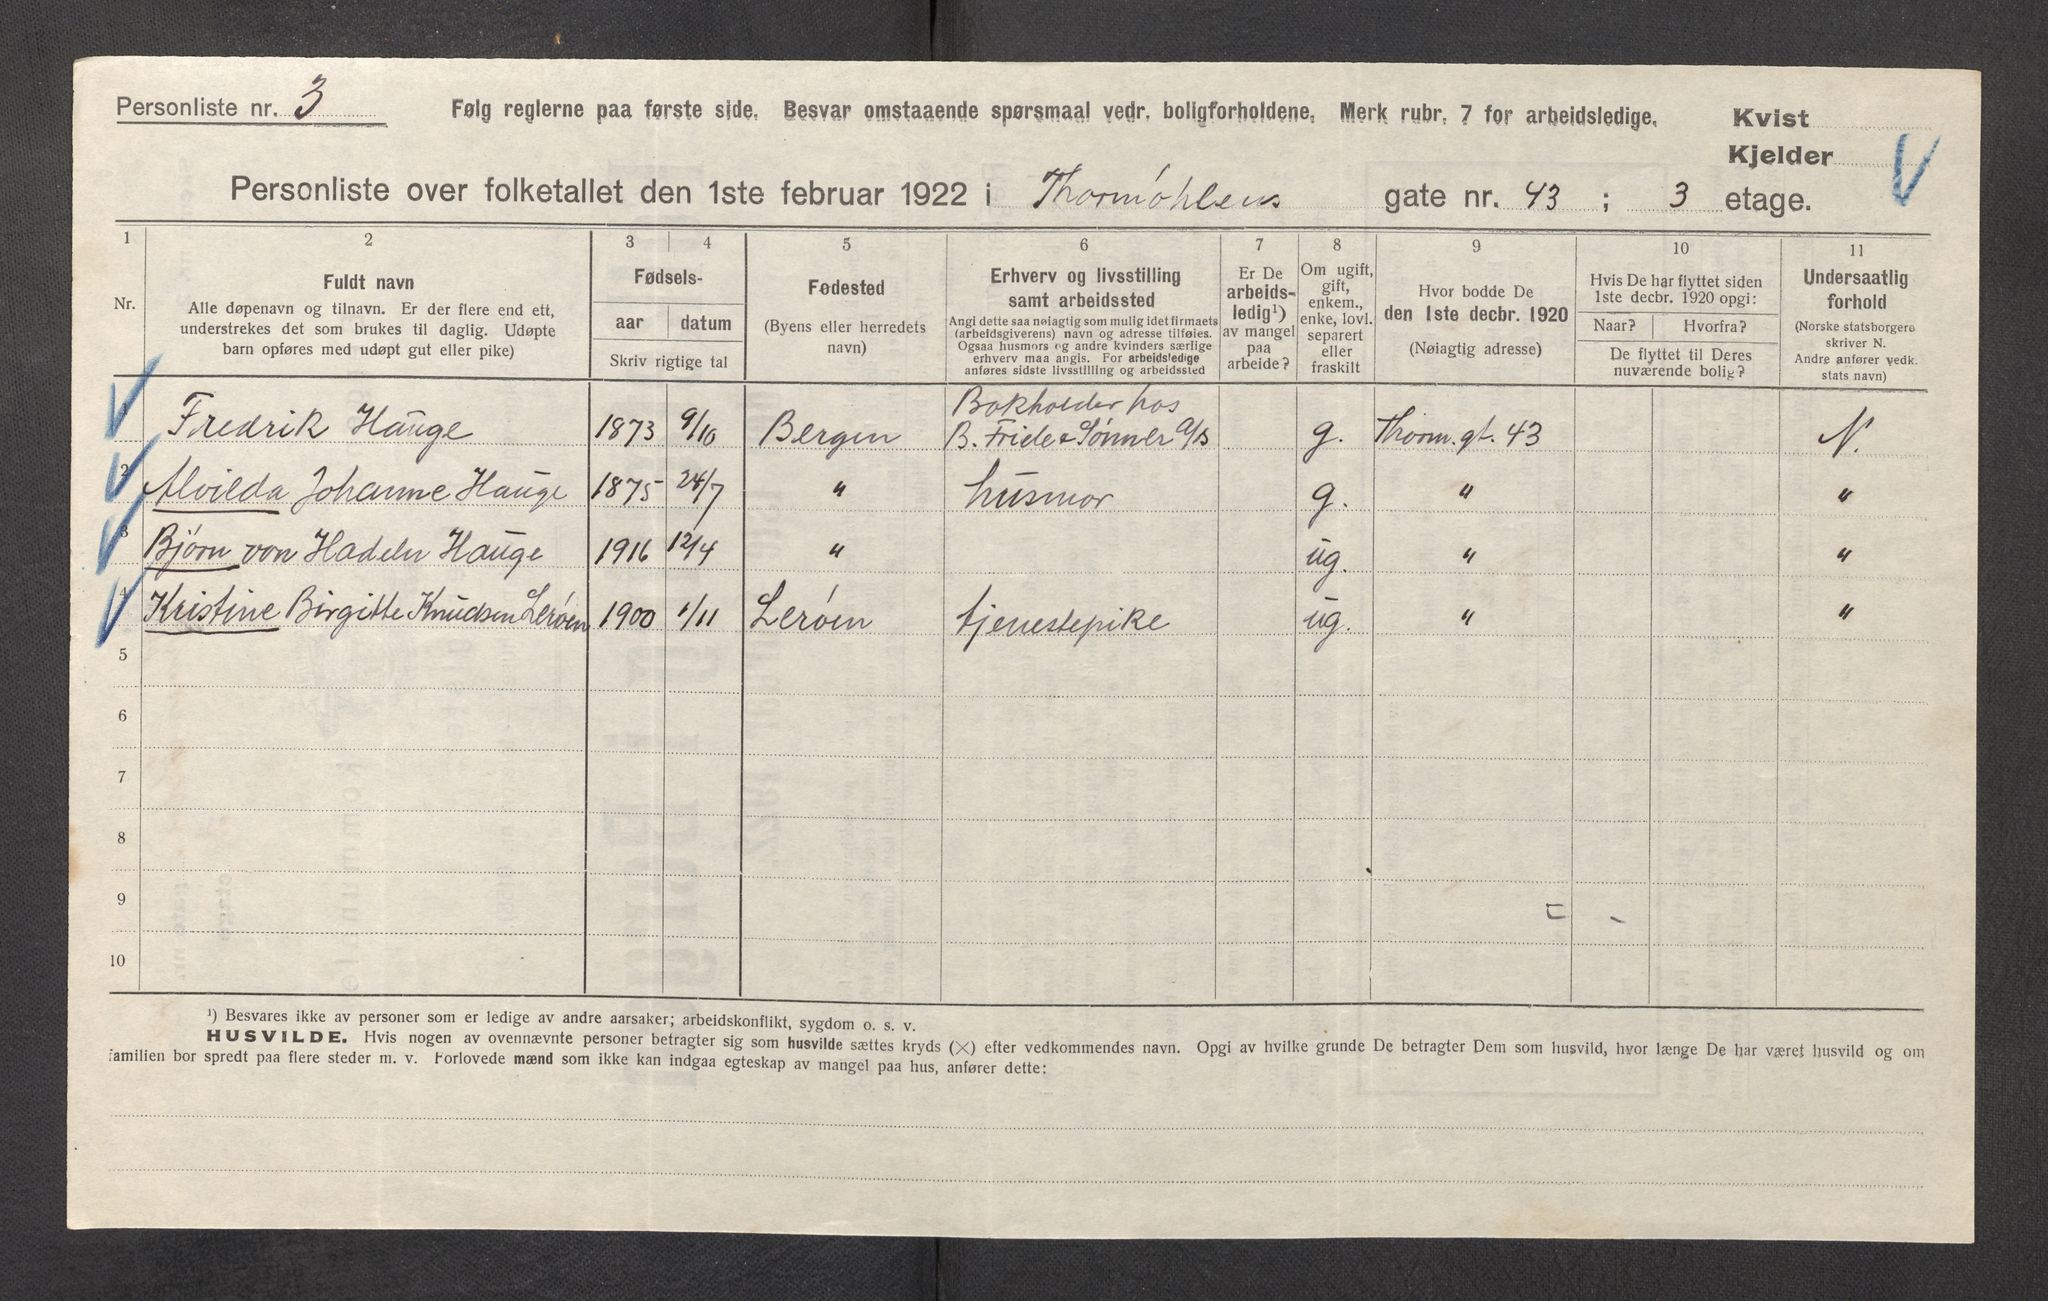 Personliste nr. 3 Følg reglerne paa første side. Besvar omstaaende spørsmaal vedr. boligforholdene. Merk rubr. 7 for arbeidsledige. Kvist
Kjelder
Personliste over folketallet den 1ste februar 1922 i Thormøhlens gate nr. 43 ; 3 etage.
1 2 3 4 5 6 7 8 9 10 11
Nr.
Fuldt navn
Alle døpenavn og tilnavn. Er der flere end ett,
understrekes det som brukes til daglig. Udøpte
barn opføres med udøpt gut eller pike)
Fødsels-
aar datum
Skriv rigtige tal
Fødested
(Byens eller herredets
navn)
Erhverv og livsstilling
samt arbeidssted
Angi dette saa nøiagtig som mulig idet firmaets
(arbeidsgiverens) navn og adresse tilføies.
Ogsaa husmors og andre kvinders særlige
erhverv maa angis. For arbeidsledige
anføres sidste livsstilling og arbeidssted
Er De
arbeids-
ledig¹)
av mangel
paa
arbeide?
Om ugift,
gift,
enkem.,
enke, lovl.
separert
eller
fraskilt
Hvor bodde De
den 1ste decbr. 1920
(Nøiagtig adresse)
Hvis De har flyttet siden
1ste decbr. 1920 opgi:
Naar? Hvorfra?
De flyttet til Deres
nuværende bolig?
Undersaatlig
forhold
(Norske statsborgere
skriver N.
Andre anfører vedk.
stats navn)
Bokholder hos
Fredrik Hauge 1873 9/10 Bergen B. Friele & Sønner A/S g. Thorm. gt. 43 N.
2 Alvilda Johanne Hauge 1875 24/7 " husmor g. " "
3 Bjørn von Hadeln Hauge 1916 12/4 " ug. " "
4 Kristine Birgitte Knudsen Lerøen 1900 1/11 Lerøen tjenestepike ug. " "
5
6
7
8
9
10
¹) Besvares ikke av personer som er ledige av andre aarsaker; arbeidskonflikt, sygdom o. s. v.
HUSVILDE. Hvis nogen av ovennævnte personer betragter sig som husvilde sættes kryds (×) efter vedkommendes navn. Opgi av hvilke grunde De betragter Dem som husvild, hvor længe De har været husvild og om
familien bor spredt paa flere steder m. v. Forlovede mænd som ikke kan indgaa egteskap av mangel paa hus, anfører dette: